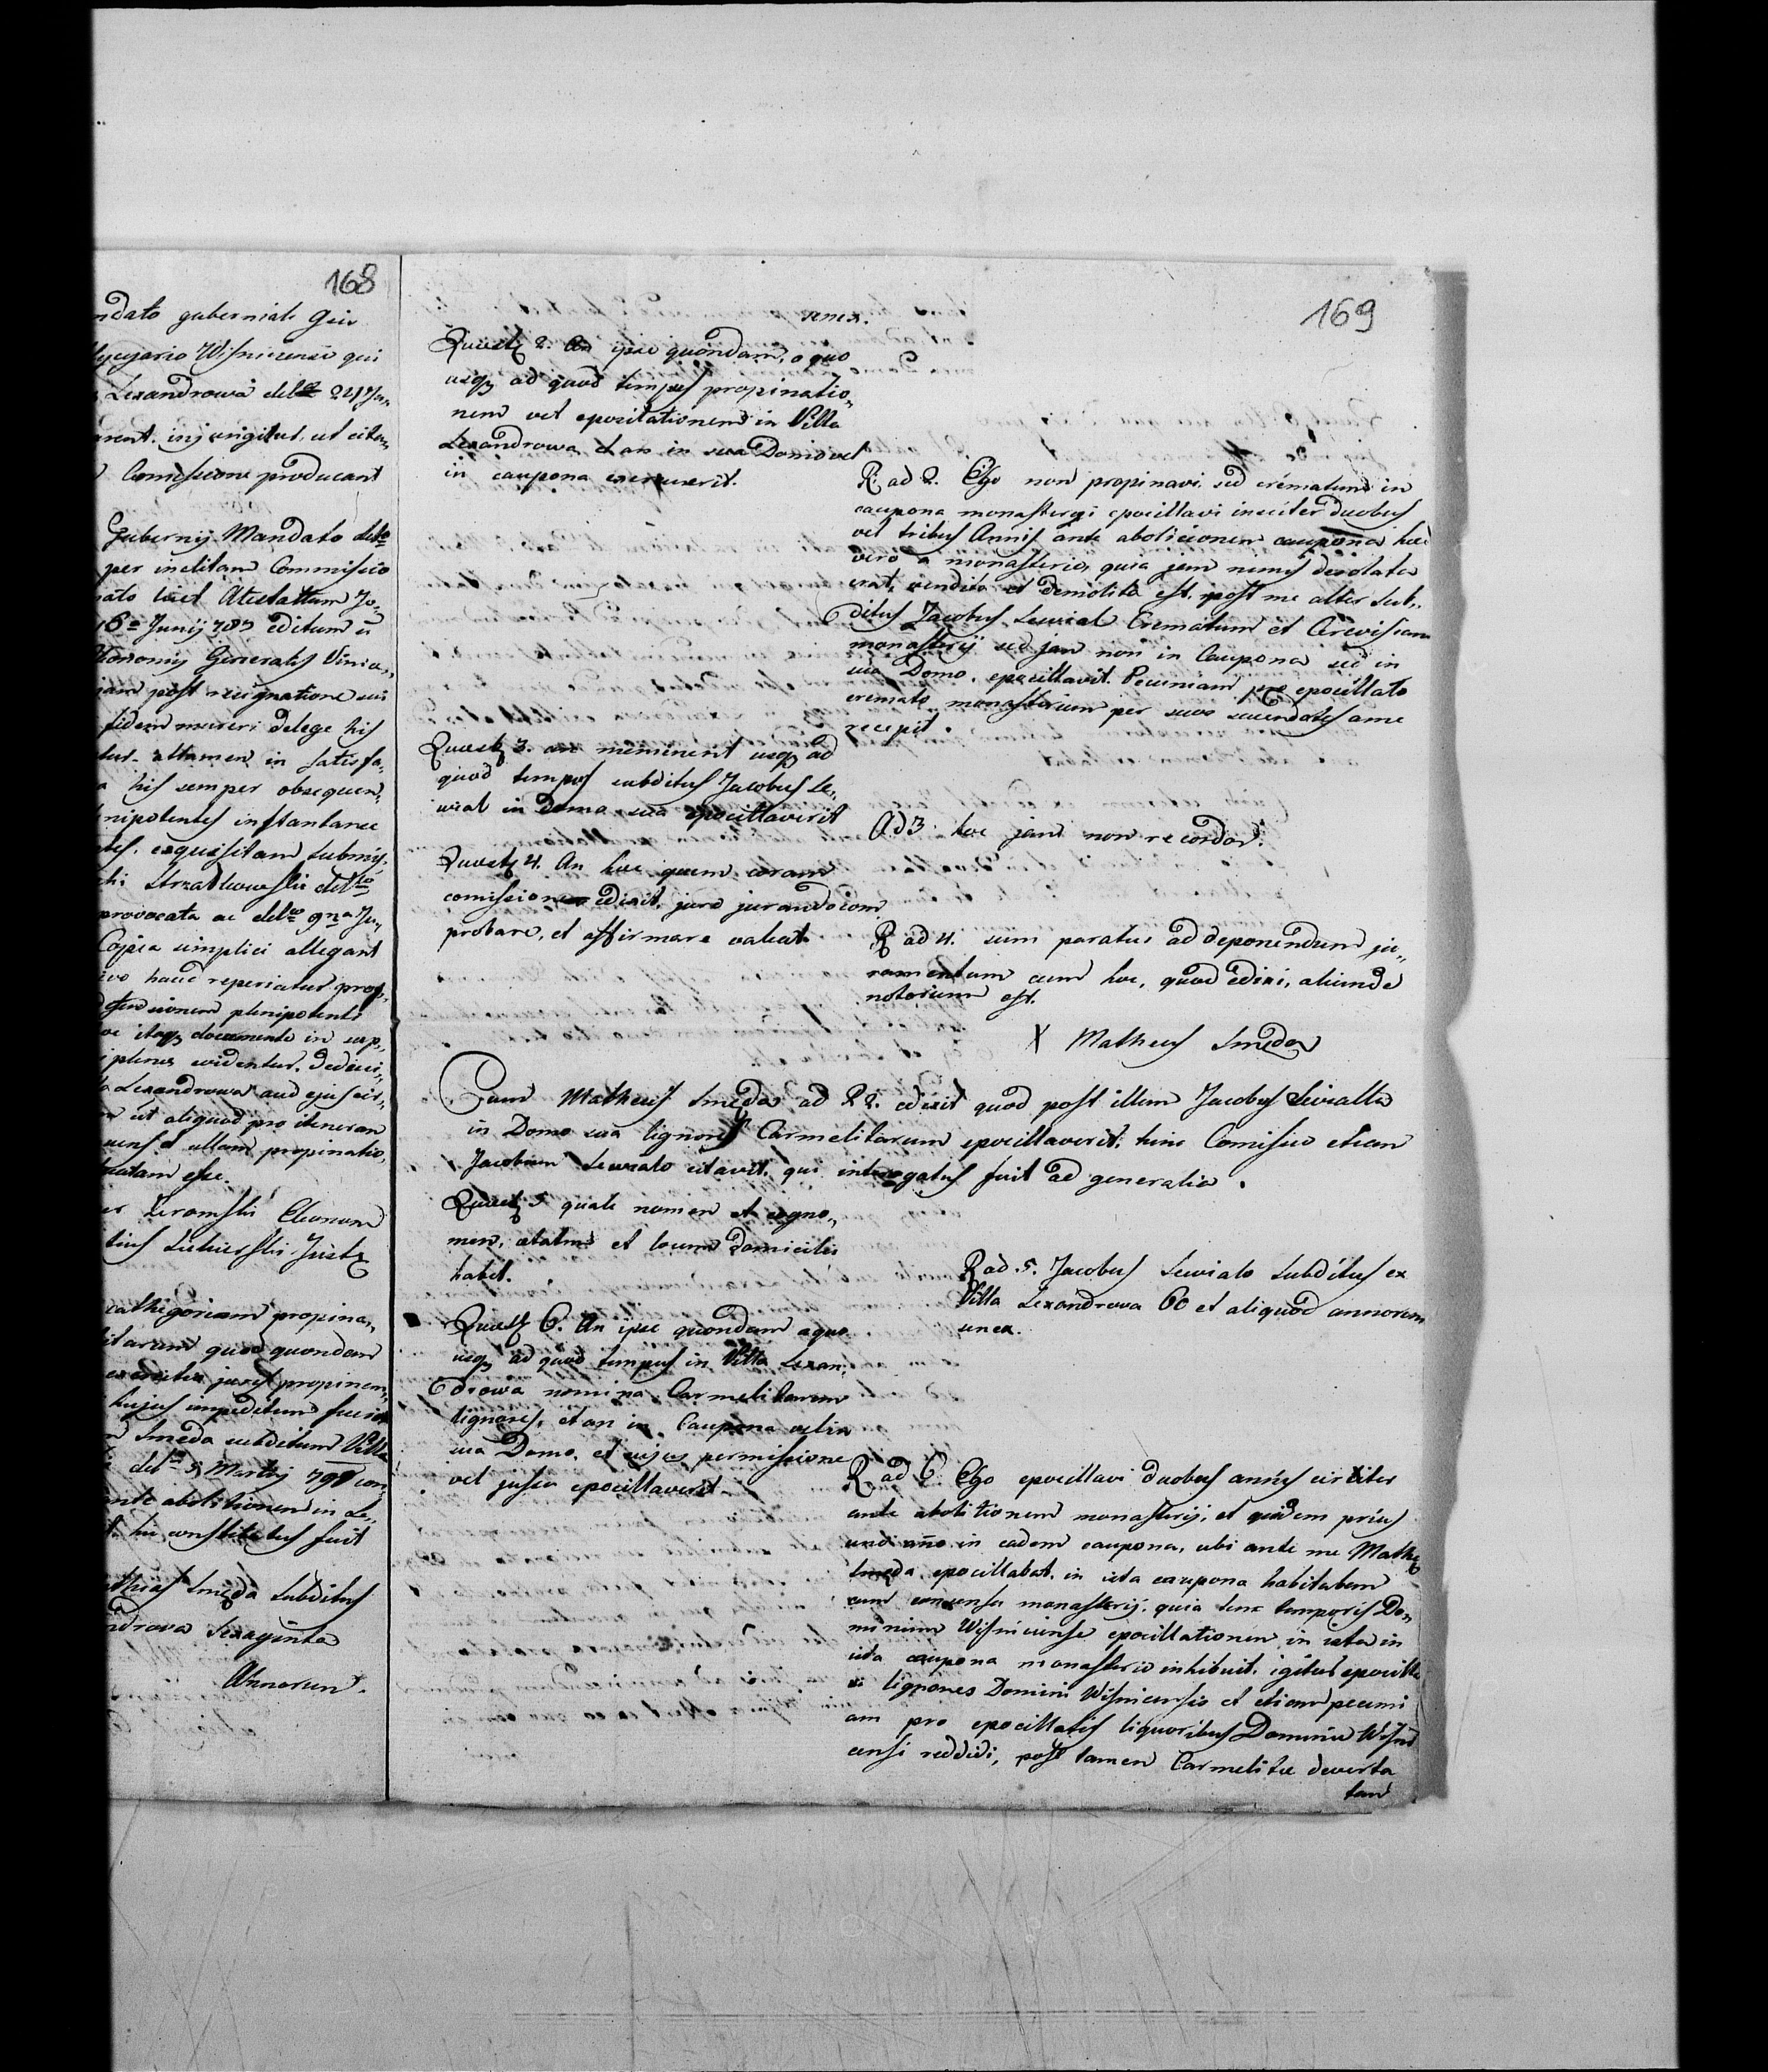 168
ndato guberniali Geie
Wisniczensi qui
Lexandrowa ddto 24 Ja„
arent. injungitur, ut citan„
Comissione producant
Gubernij Mandato ddto
per inclitam Commissio
nato licet Atestattum Jo„
16a Junij 787 editum a
Oeconomij Generalis Vinia„
iam post resignatione sui
fidem mereri delege his
tur. attamen in satisfa„
his semper obsequen„
nipotentis instantance
exquisitam submij„
ski Strzatkowski ddto
provocata ac ddto 9na Ju„
Copia simplici allegant
ivo haud reperiatur prop„
plenipotenti
ve itaq documento in sup„
plures evidentur. Deduci„
Lexandrowa aud ejus cir„
ut aliquod pro itineran
uens et ullam propinatio„
tratam esse.
Oeconom
Justz
cathegoriam propina„
litarum quod quondam
juris propinan„
hujus impeditum fuerit
Smęda subditum Villa
ddto 5 Martij 798 con„
ante abolitionem in Le„
hic constitutus fuit
athias Smęda Subditus
ndrova Sexaginta
Annorum.
169
unex.
Quaestz 2. An ipse quondam, a quo
usqz ad quod tempus propinatio„
nem vel epocitationem in Villa
Lexandrowa, et an in sua Domo vel
in caupona exercuerit.
R. ad 2. Ego non propinavi, sed crematum in
caupona monasterji epocillavi inciter duobus
vel tribus Annis ante abolicionem caupona haec
vero a monasterio, quia jam nimis desolata
erat, vendita et demolita est, post me alter sub„
ditus Jacobus Lewiat Crematum et Cerevisiam
monasterij sed jam non in Caupona sed in
sua Domo, epocillavit. Pecuniam pro epocillato
cremato monasterium per suos sacerdotes a me
recepit.
Quaestz 3. an meminerit usqz ad
quod tempus subditus Jacobus Le„
wiat in Domo sua epocillaverit
Ad 3. hoc jam non recordor.
Quaestz 4. An hoc quem coram
comissione edixit, jure jurando com
probare, et affirmare valeat
R ad 4. sum paratus ad deponendum ju„
ramentum cum hoc, quod edixi, aliunde
notorium est.
X Matheus Smęda
Cum Matheus Smęda ad R 2. edixit quod post illum Jacobus Lewialta
in Domo sua liqnores Carmelitarum epocillaverit, hinc Comisio etiam
Jacobum Lewiato citavit, qui interogatus fuit ad generalia.
Quaestz 5 quale nomen et cogno„
men, aetatem et locum domicilii
habet.
R ad 5. Jacobus Lewiato Subditus ex
Villa Lexandrowa 60 et aliquod annorum
unex.
Quaestz 6. An ipse quondam a quo
usqz ad quod tempus in Villa Lexan„
drowa nomina Carmelitarum
liqnores, et an in Caupona vel in
sua Domo, et cujus permissione
vel jussu epocillaverit.
R ad 6. Ego epocillavi duobus annis circiter
ante abolitionem monasterij, et quidem prius
uno año in eadem caupona, ubi ante me Mathz
Smęda epocillabat, in ista caupona habitabam
cum consensu monasterij, quia tunc temporis Do„
minium Wisnicense epocillationem in ista in
ista caupona monasterio inhibuit, igitur epocilla
vi liqnores Dominii Wisnicensis et etiam pecuni
am pro epocillatis liquoribus Dominio Wisni
censi reddidi, post tamen Carmelitae deverta
tam